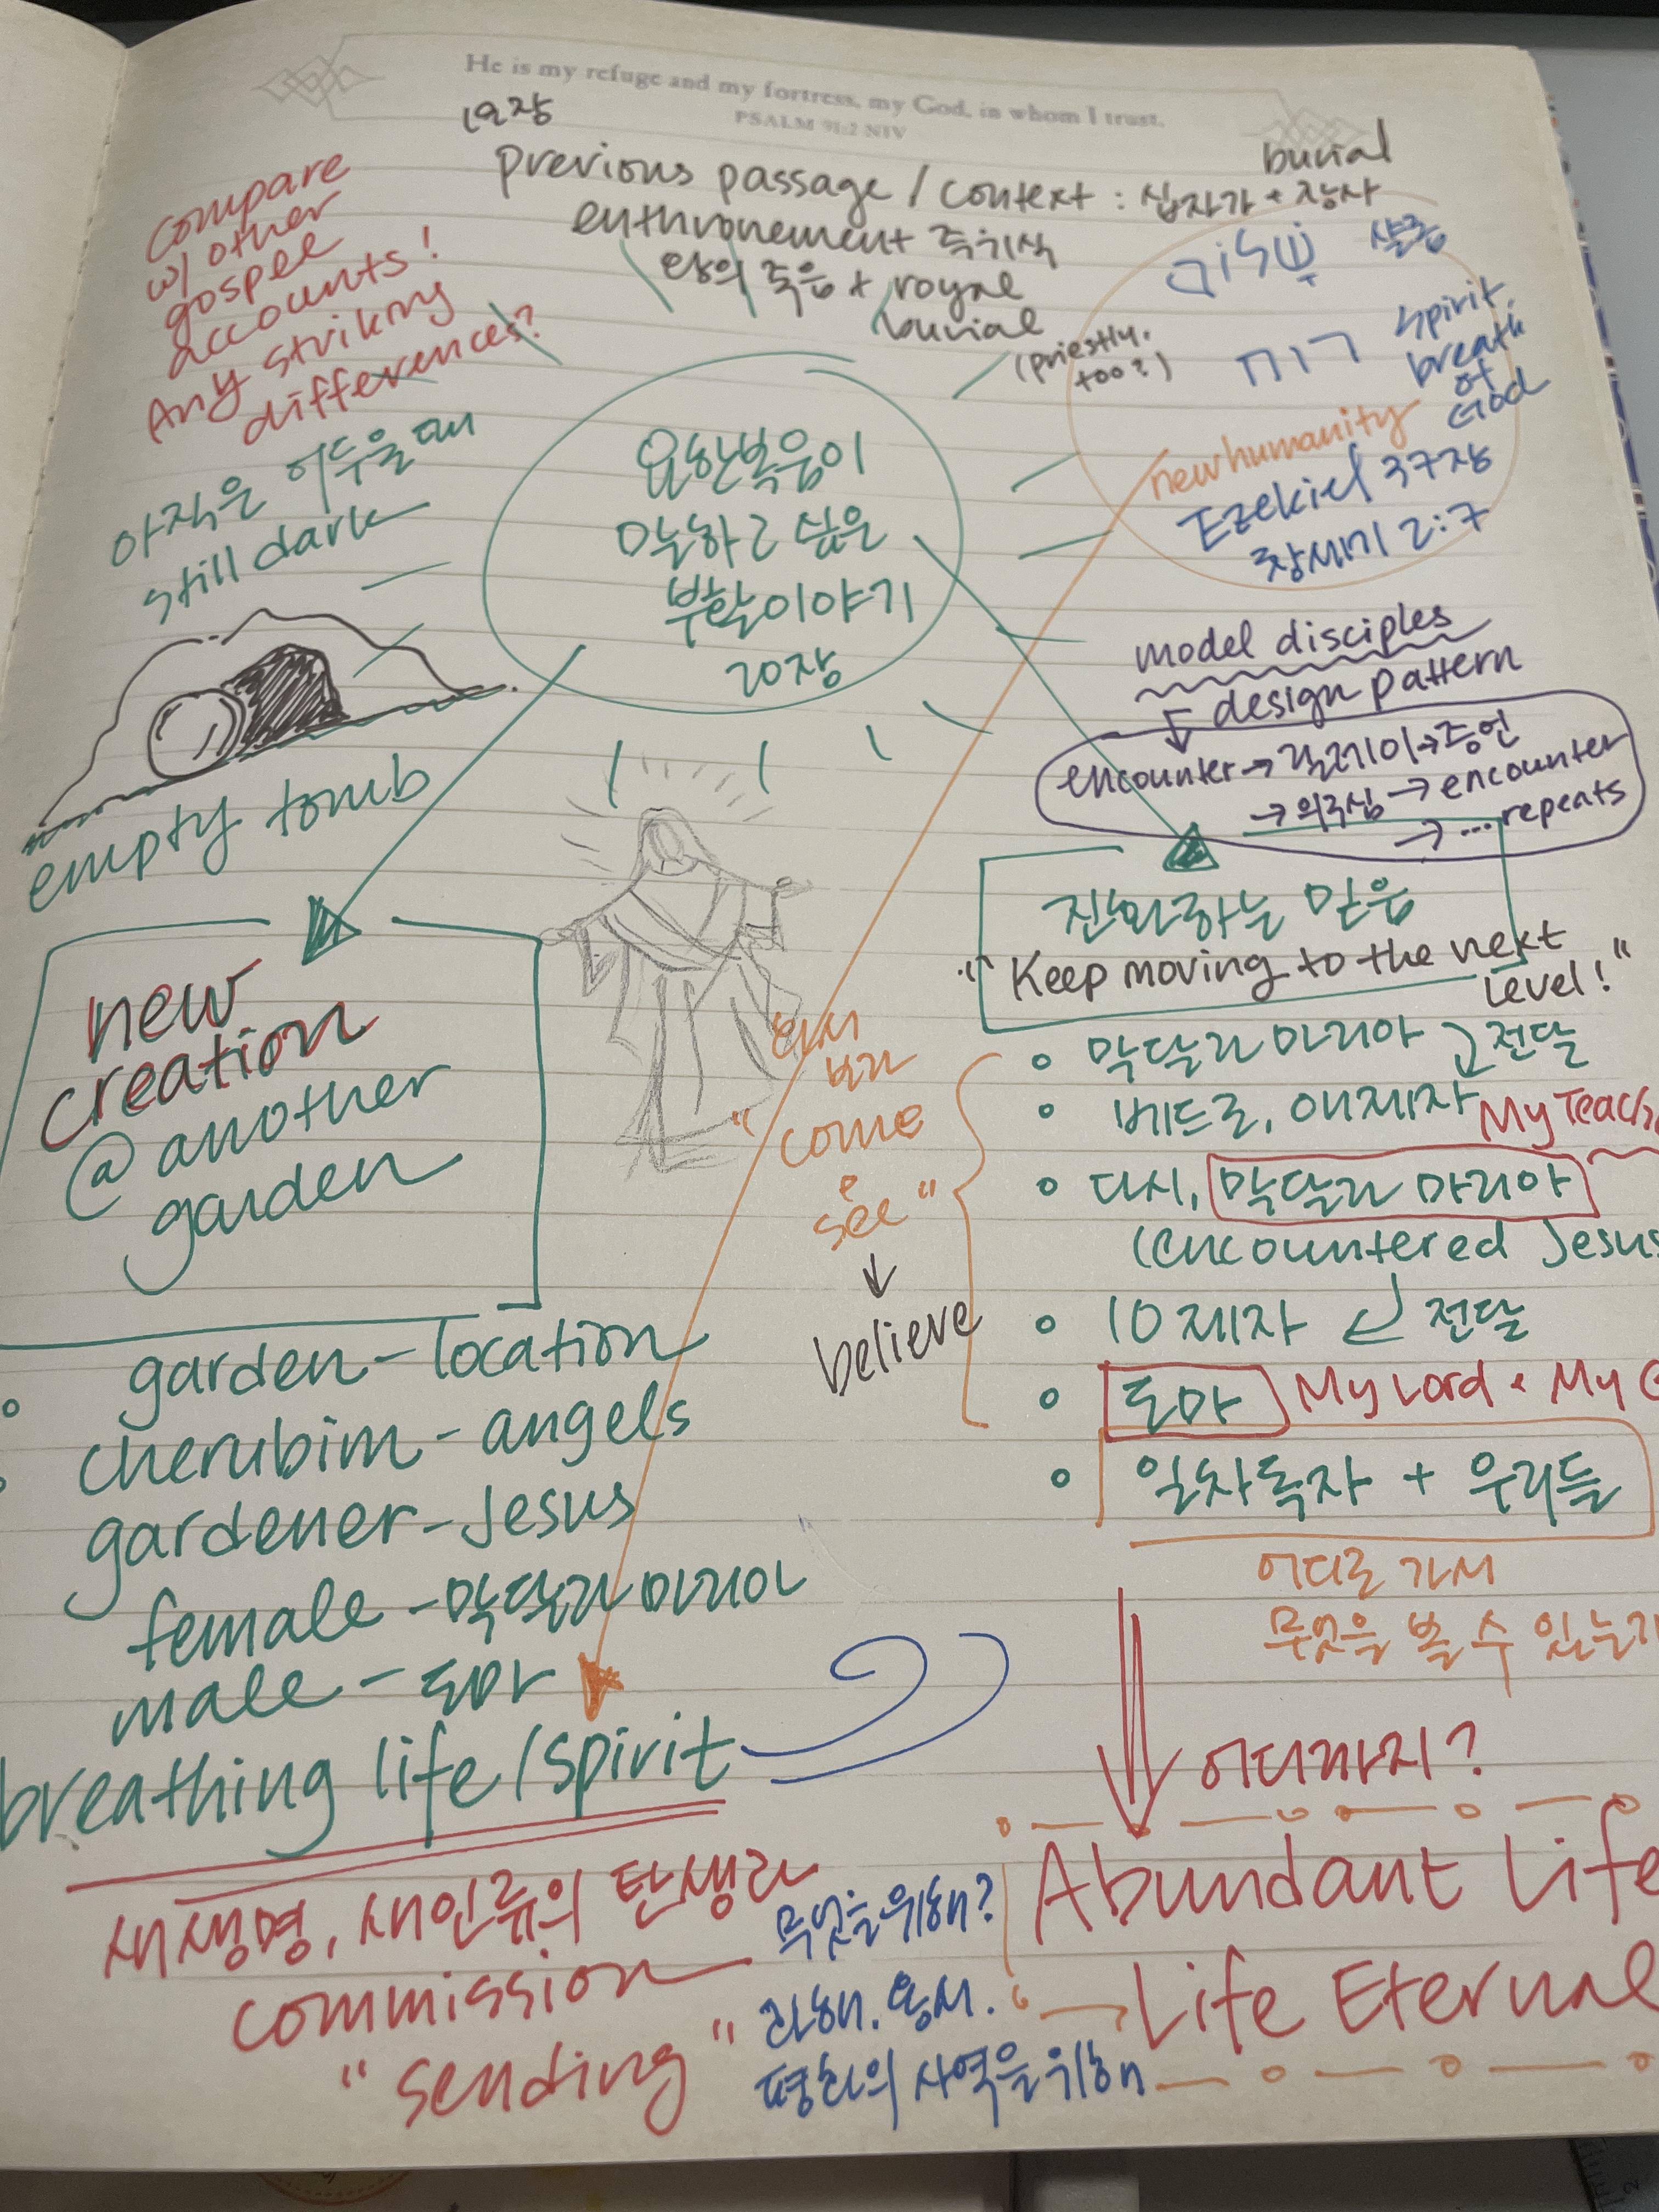 He is my refuge and my fortress, my God, in whom I trust.
PSALM 91:2 NIV
19장
previous passage / context : 십자가 + 장사
burial
enthronement 즉위식
왕의 죽음 + royal
burial
(priestly,
too?)
compare
w/ other
gospel
accounts!
Any striking
differences?
שָׁלוֹם 샬롬
רוח spirit,
breath
of
God
new humanity
Ezekiel 37장
창세기 2:7
아직은 어두울 때
still dark
empty tomb
요한복음이
말하고 싶은
부활이야기
20장
model disciples
design pattern
encounter → 딜레이 → 증언
→ 의구심 → encounter
→ ... repeats
진화하는 믿음
"Keep moving to the next
level!"
• 막달라 마리아 전달
• 베드로, 애제자
My Teach
• 다시, 막달라 마리아
(encountered Jesus
• 10 제자 전달
• 도마 My Lord & My G
• 일차독자 + 우리들
어디로 가서
무엇을 볼 수 있는가
와서
보라
"come
&
see"
↓
believe
new
creation
@ another
garden
garden - location
cherubim - angels
gardener - Jesus
female - 막달라 마리아
male - 도마
breathing life / spirit
새생명, 새인류의 탄생과
commission
"sending"
무엇을 위해?
화해. 용서.
평화의 사역을 위해
어디까지?
Abundant Life
Life Eternal